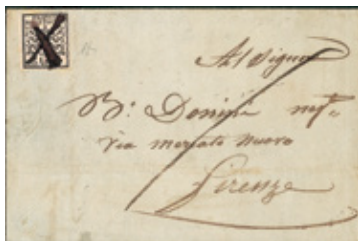 Al Signor
B: Donini
Via Mercato Nuovo
Firenze